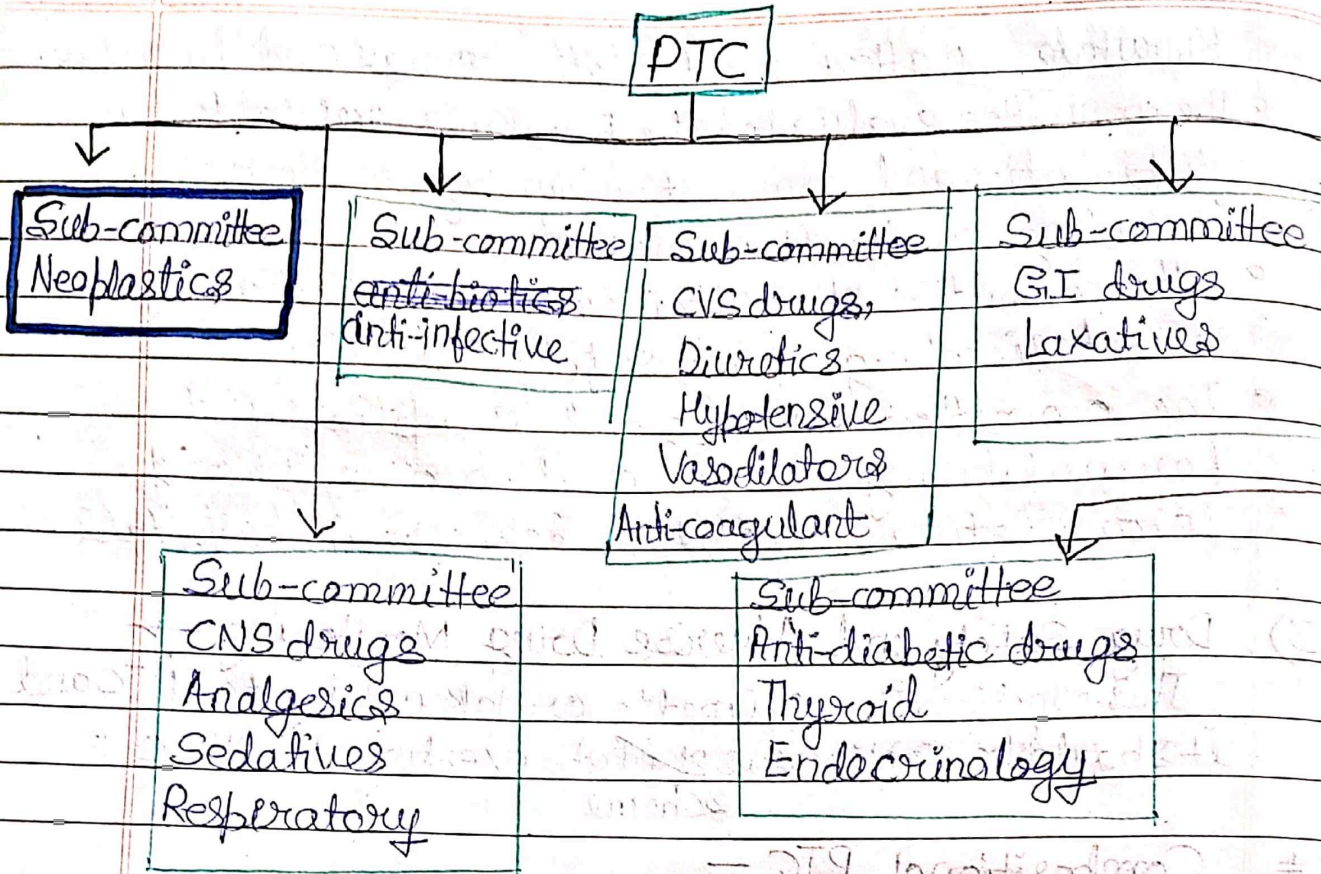 PTC
Sub-committee
Neoplastics
Sub-committee
anti-biotics
anti-infective
Sub-committee
CVS drugs,
Diuretics
Hypotensive
Vasodilators
Anti-coagulant
Sub-committee
GI drugs
Laxatives
Sub-committee
CNS drugs
Analgesics
Sedatives
Respiratory
Sub-committee
Anti-diabetic drugs
Thyroid
Endocrinology